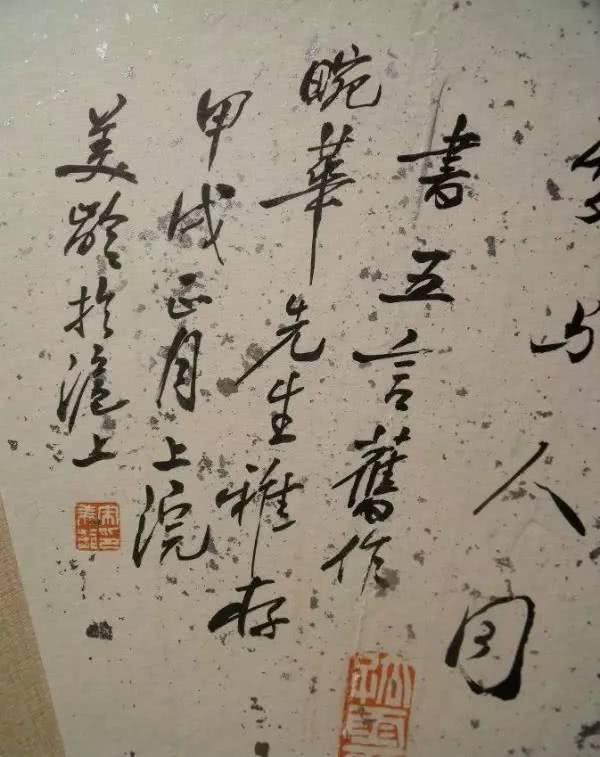 与人同
書五言舊作
畹華先生雅存
甲戌正月上浣
美齡於滬上
宋美齡印